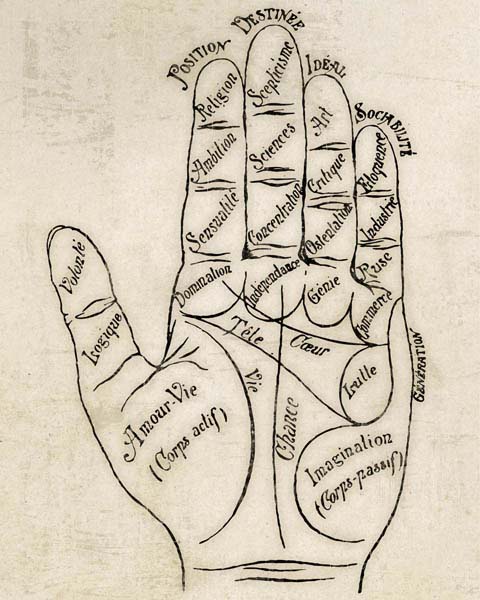 POSITION
DESTINÉE
IDÉAL
SOCIABILITÉ
Religion
Ambition
Sensualité
Domination
Scepticisme
Sciences
Concentration
Indépendance
Art
Critique
Ostentation
Génie
Eloquence
Industrie
Ruse
Commerce
Volonté
Logique
Tête
Cœur
Vie
Chance
Lutte
GÉNÉRATION
Amour-Vie
(Corps actif)
Imagination
(Corps-passif)